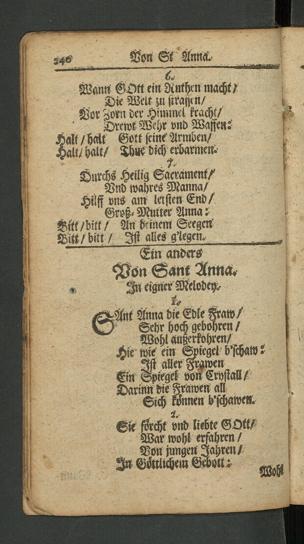 246 Von St Anna.
6.
Wann GOtt ein Ruthen macht/
Die Welt zu straffen/
Vor Zorn der Himmel kracht/
Drewt Wehr vnd Waffen:
Halt/ halt Gott seine Armben/
Halt/ halt/ Thue dich erbarmen.
7.
Durchs Heilig Sacrament/
Vnd wahres Manna/
Hilff vns am letsten End/
Groß-Mutter Anna:
Bitt/ bitt/ An deinem Seegen
Bitt/ bitt/ Ist alles g'legen.
Ein anders
Von Sant Anna.
In eigner Melodey.
1.
SAnt Anna die Edle Fraw/
Sehr hoch gebohren/
Wohl außerkohren/
Hie wie ein Spiegel b'schaw:
Ist aller Frawen
Ein Spiegel von Crystall/
Darinn die Frawen all
Sich können b'schawen.
2.
Sie förcht vnd liebte GOtt/
War wohl erfahren/
Von jungen Jahren/
In Göttlichem Gebott:
Wohl